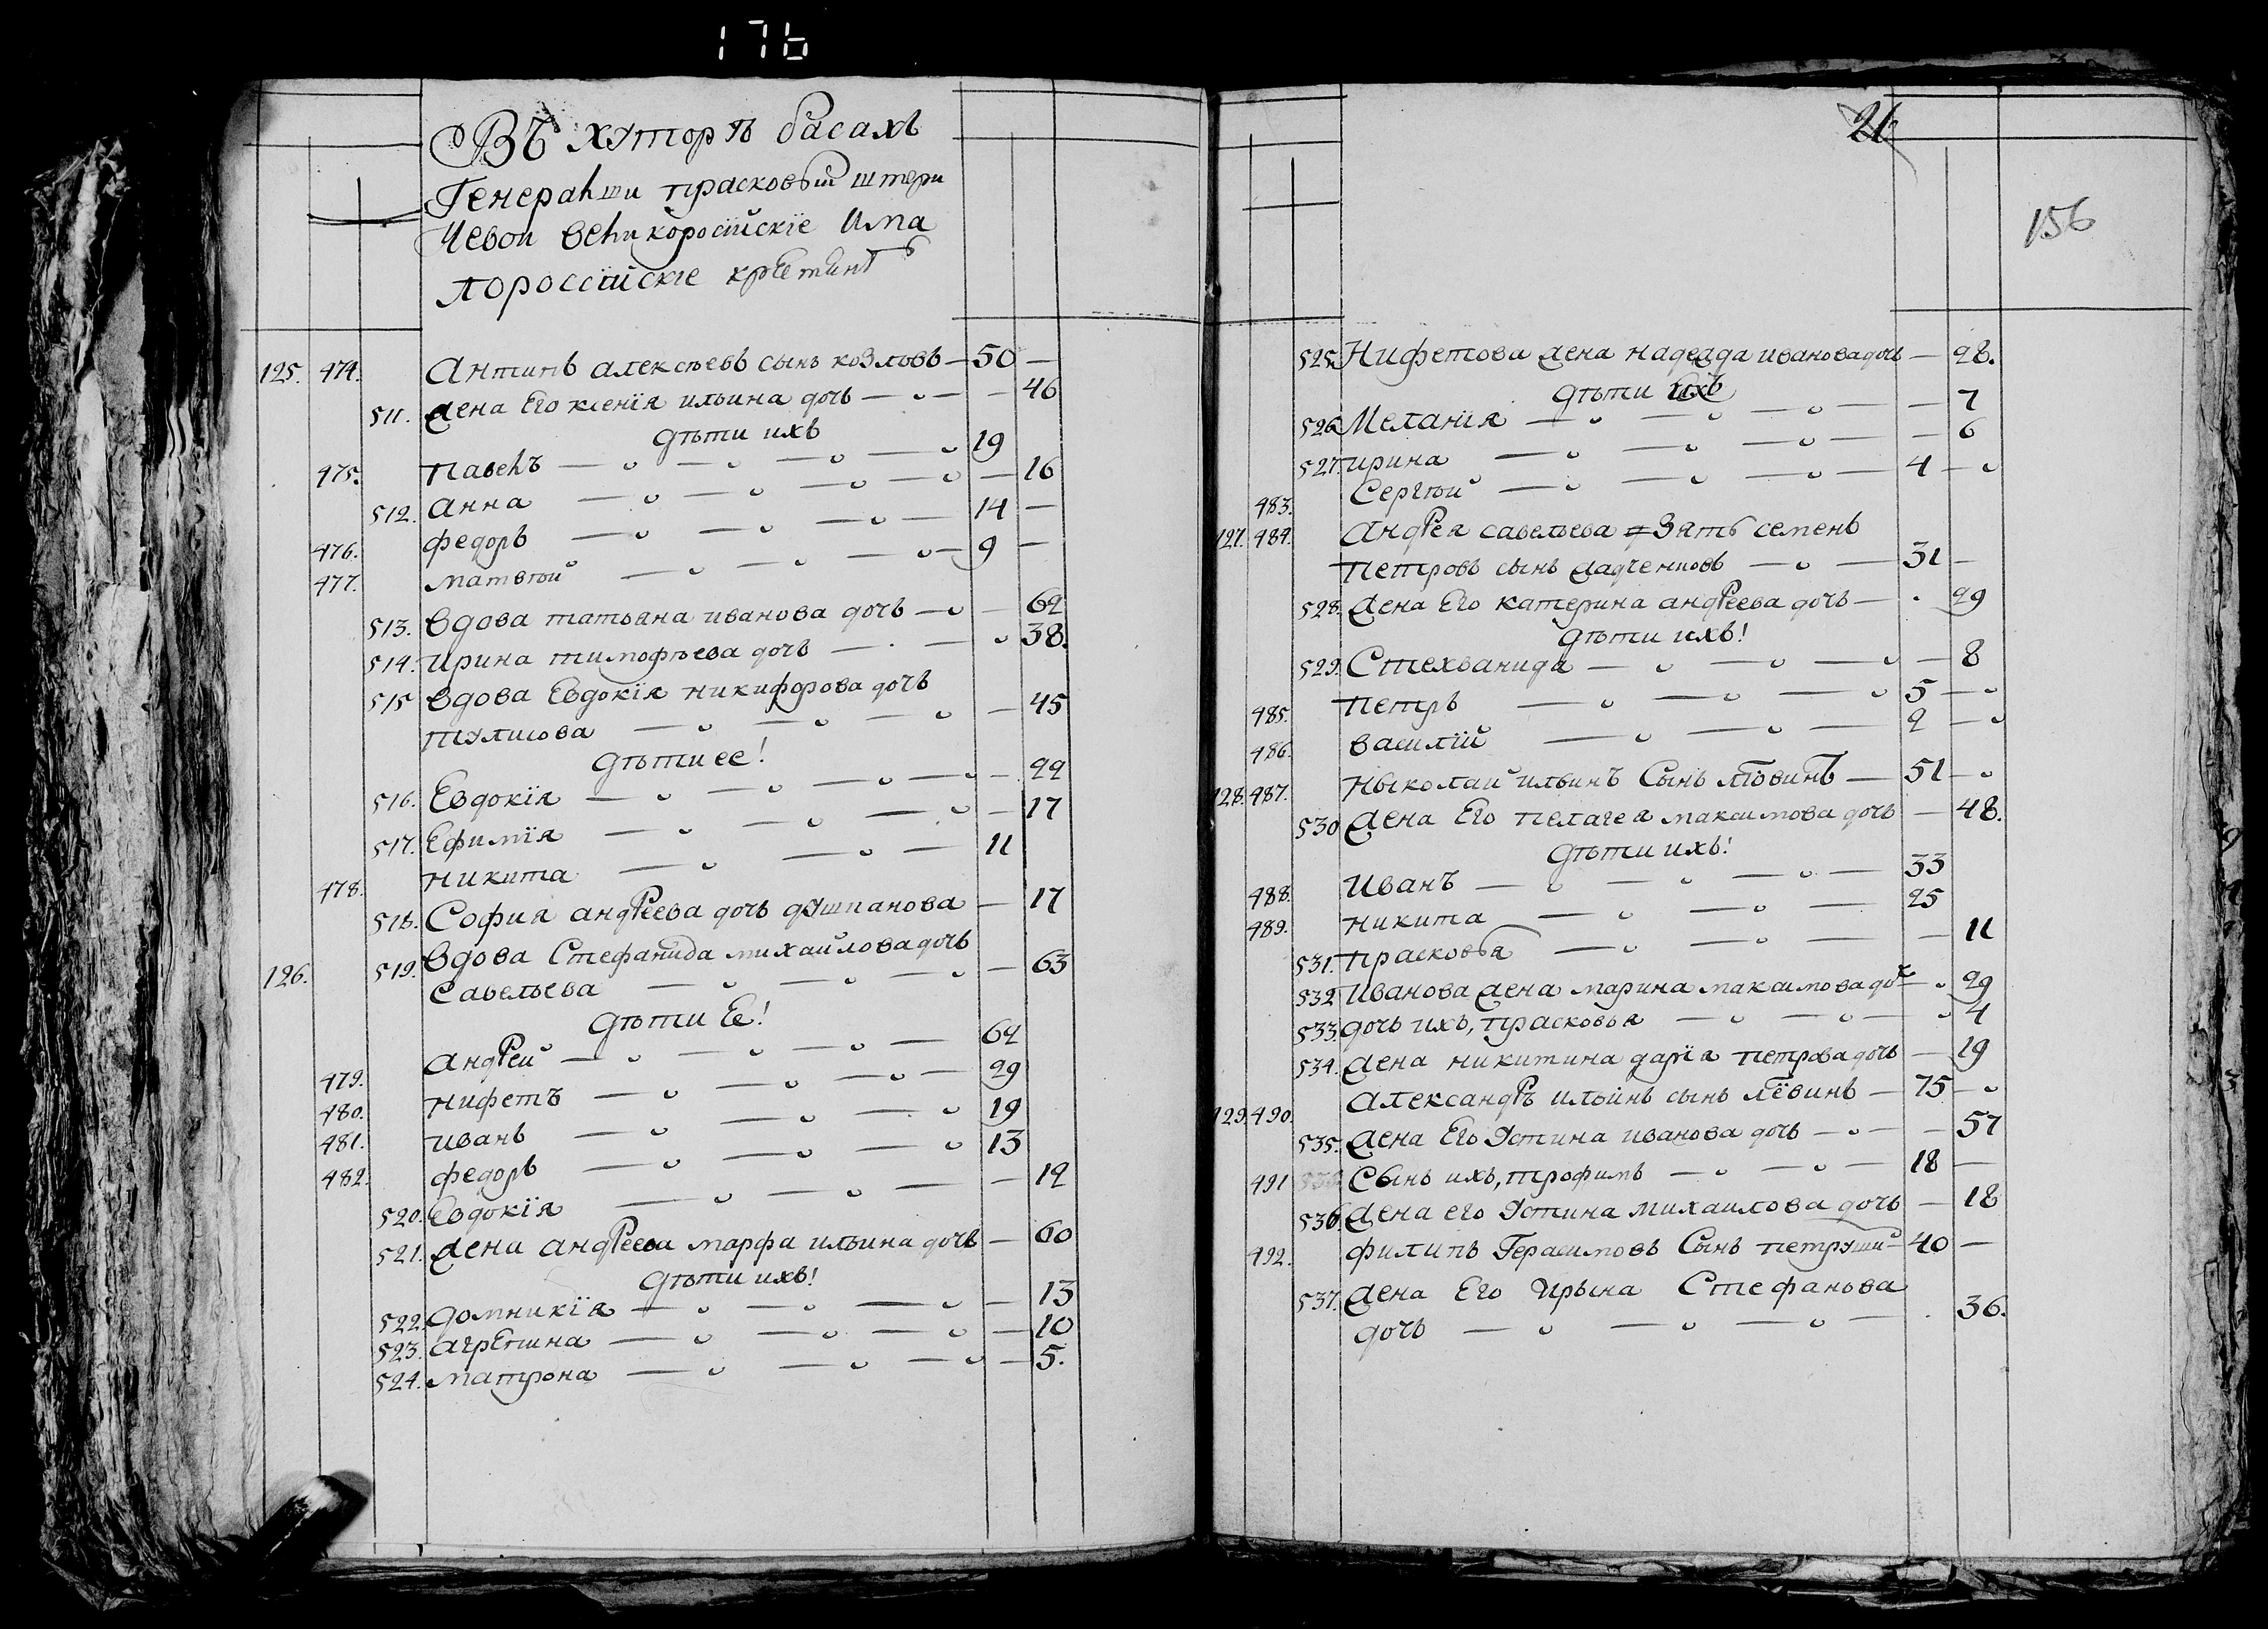 176
Въ хуторѣ басахъ
Генеральши прасковьи штери
чевои великоросїискїе има
лороссїйскїе
125. 474. Антипъ алексѣевъ сынъ козловъ — 50 —
511. жена Его ксенїя ильина дочь — 46
дѣти ихъ
475. Павелъ — 19
512. Анна — 16
476. федоръ — 14 —
477. матвѣй — 9 —
513. вдова татьяна иванова дочь — 62
514. Ирина тимофѣева дочь — 38.
515 вдова Евдокїя никифорова дочь
— 45
дѣти ее!
516. Евдокїя — 22
517. Ефимїя — 17
478. никита — 11
518. София андреева дочь — 17
126. 519. вдова Стефанида михаилова дочь
Савельева — 63
дѣти Ее!
479. андрей — 62
480. нифетъ — 29
481. иванъ — 19
482. федоръ — 13
520. Евдокїя — 12
521. жена андреева марфа ильина дочь — 60
дѣти ихъ!
522. домникїя — 13
523. агрепина — 10
524. матрона — 5.
21
156
525. Нифетова жена надежда иванова дочь — 28.
дѣти ихъ
526. Меланїя — 7
527. ирина — 6
483. Сергѣй — 4 —
127. 484. андрея савельева зять семенъ
петровъ сынъ — 31 —
528. жена Его катерина андреева дочь — 29
дѣти ихъ!
529. Стехванида — 8
485. петръ — 5 —
486. василїй — 2 —
128. 487. ныколаи ильинъ Сынъ — 51 —
530 жена Его пелагея максимова дочь — 48.
дѣти ихъ!
488. Иванъ — 33
489. никита — 25
531. прасковья — 11
532 Иванова жена марина максимова доч — 29
533. дочь ихъ, прасковья — 4
534. жена никитина дарїя петрова дочь — 19
129. 490. александръ ильинъ сынъ лёвинъ — 75 —
535. жена Его Устина иванова дочь — 57
491 Сынъ ихъ, трофимъ — 18 —
536 жена его Устина михаилова дочь — 18
492. филипъ Герасимовъ Сынъ — 40 —
537. жена Его Ирына Стефанова
дочь — 36.